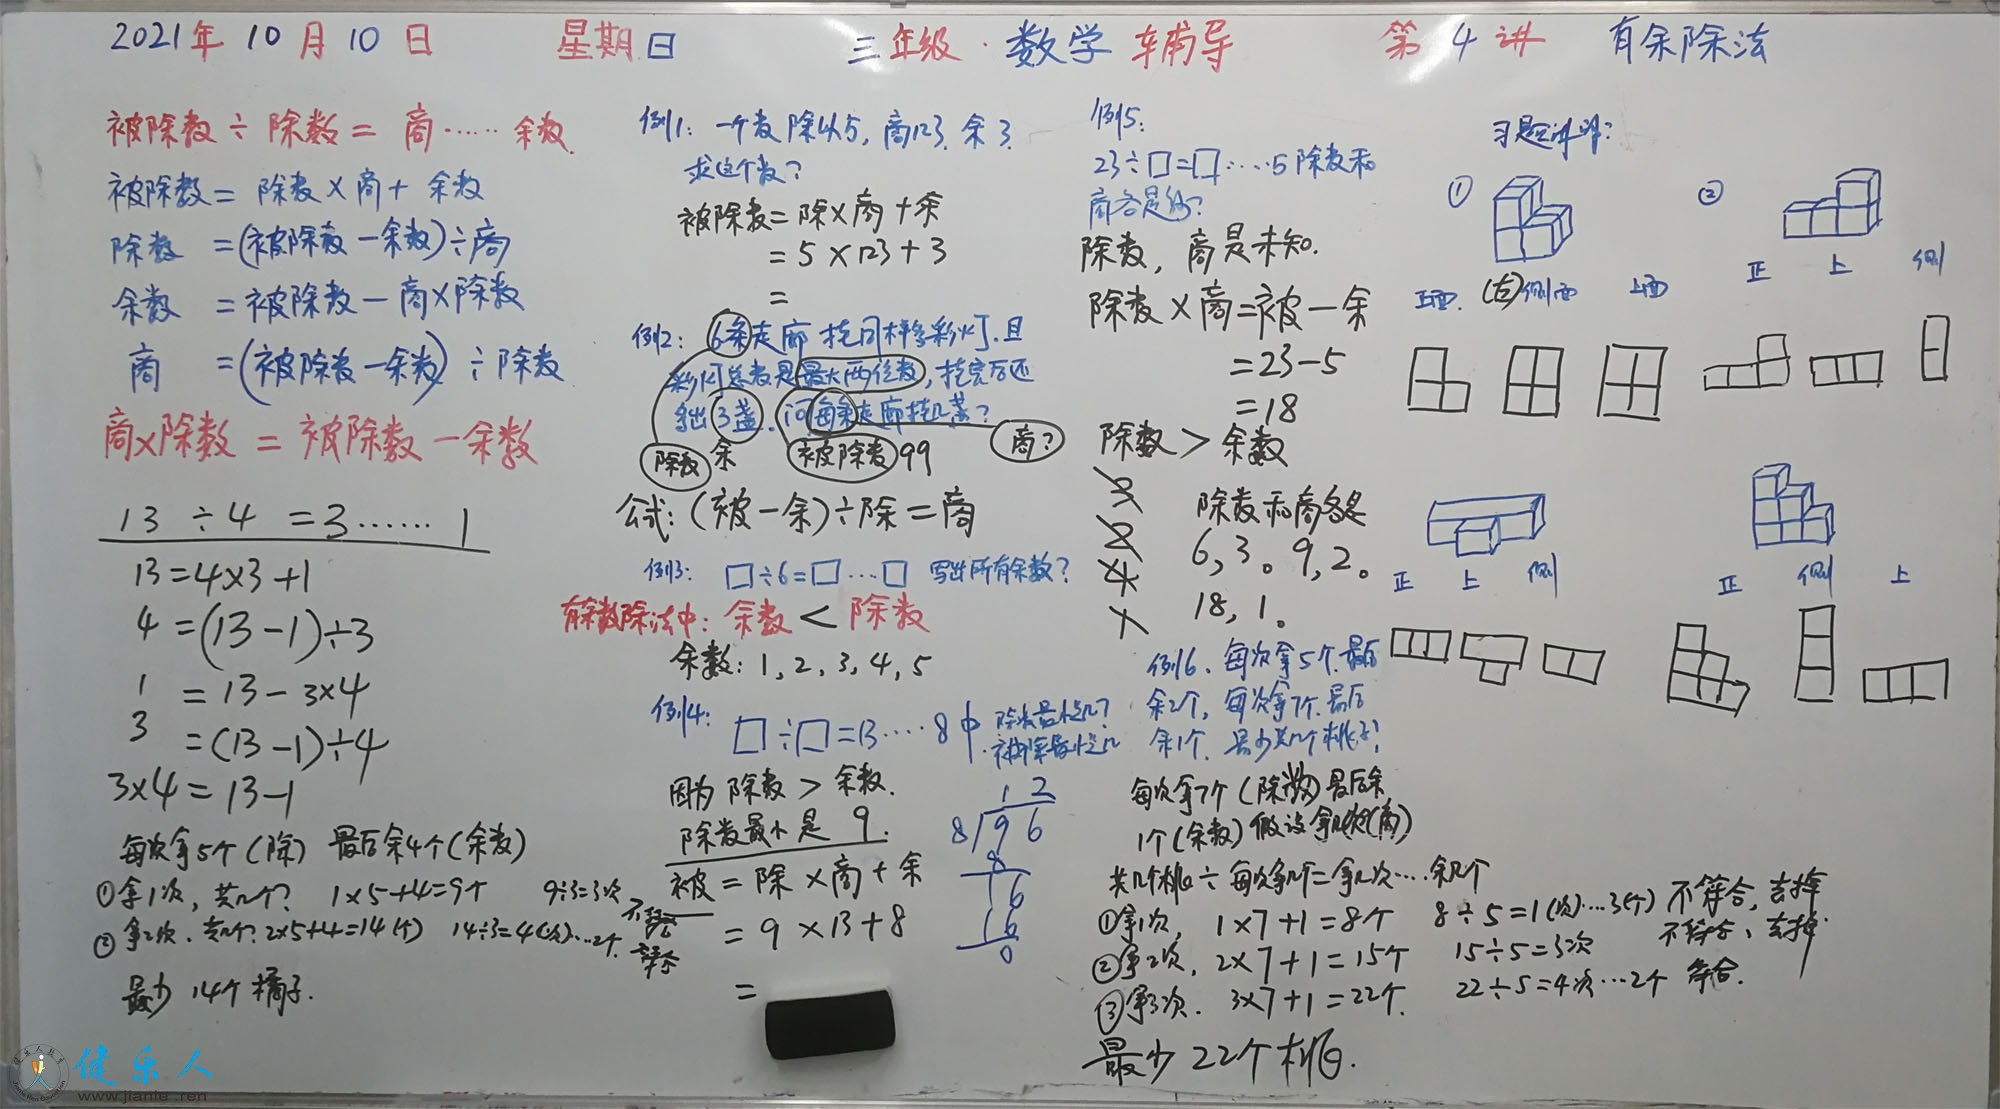 2021年10月10日 星期日 三年级·数学 辅导 第4讲 有余除法
被除数÷除数=商……余数.
被除数=除数×商+余数
除数=(被除数-余数)÷商
余数=被除数-商×除数
商=(被除数-余数)÷除数
商×除数=被除数-余数
13÷4=3……1
13=4×3+1
4=(13-1)÷3
1=13-3×4
3=(13-1)÷4
3×4=13-1
每次拿5个(除) 最后余4个(余数)
①拿1次,共几个? 1×5+4=9个 9÷3=3次
②拿2次.共几个?2×5+4=14(个) 14÷3=4(次)…2个
最少14个橘子.
例1:一个数除以5,商123.余3.
求这个数?
被除数=除×商+余
=5×123+3
=
例2:6条走廊挂同样多彩灯.且
彩灯总数是最大两位数,挂完后还
多出3盏.问每条走廊挂几盏?
除数 余 被除数99 商?
公式:(被-余)÷除=商
例3:□÷6=□…□ 写出所有余数?
有余数除法中:余数<除数
余数:1,2,3,4,5
例4:□÷□=13….8中
除数最小是几?
被除数最小是几
因为除数>余数.
除数最小是9.
被=除×商+余
=9×13+8
=
12
8 96
8
16
16
0
例5:
23÷□=□….5除数和
商各是几?
除数,商是未知.
除数×商=被-余
=23-5
=18
除数>余数
3
2
4
1
除数和商各是
6,3。9,2。
18,1。
例6.每次拿5个.最后
余2个,每次拿7个.最后
余1个.最少共几个桃子?
每次拿7个(除数)最后余
1个(余数)假设拿几次(商)
共几个桃÷每次拿几个=拿几次…余几个
①拿1次,1×7+1=8个 8÷5=1(次)…3(个) 不符合,去掉
②拿2次,2×7+1=15个 15÷5=3次 不符合,去掉.
③拿3次.3×7+1=22个. 22÷5=4次…2个 符合.
最少22个桃.
习题讲解:
① ②
正面.(右)侧面 上面
正 上 侧
正 上 侧
正 侧 上
健乐人
www.jianle.ren